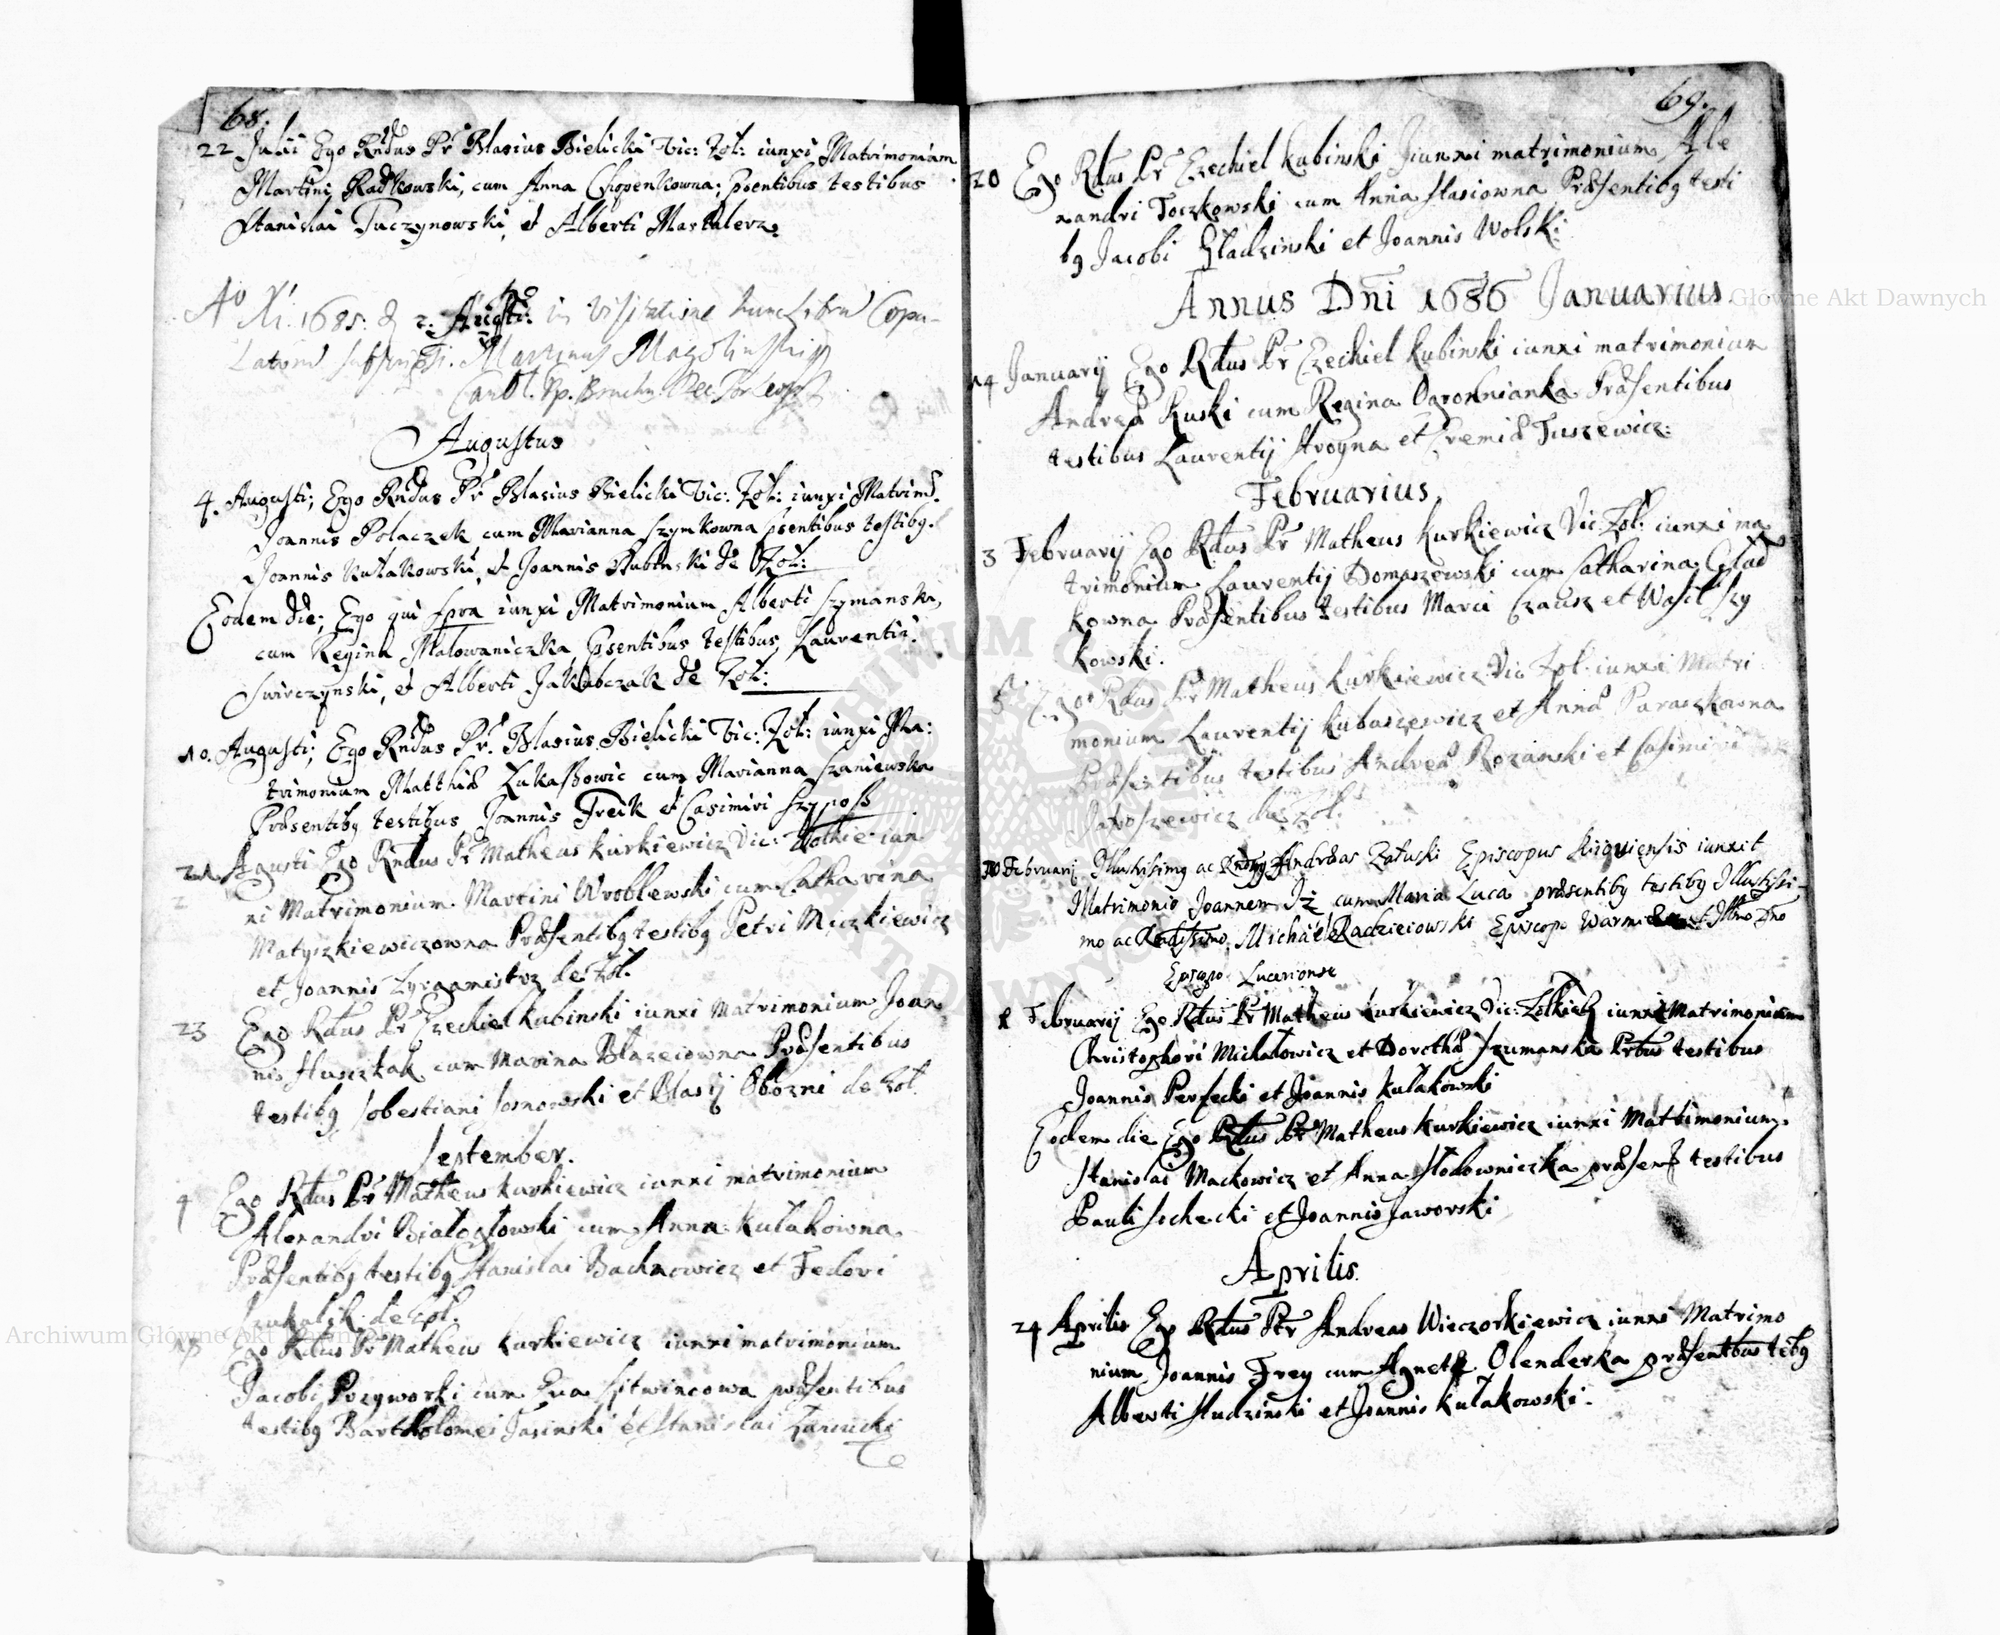 68.
22 Julii Ego Rndus Pr Blasius Bielicki Vic: Zol: iunxi Matrimonium
Martini Radkowski, cum Anna Chopenkowna; psentibus testibus
Stanislai Tuczynowski, et Alberti Mastalerz.
Ao Xi. 1685. d 2. Augti: in visitatione hunc librū Copu-
latorū subscripsi. Martinus
Augustus
4. Augusti; Ego Rndus Pr Blasius Bielicki Vic: Zol: iunxi Matrim.
Joannis Polaczek cum Marianna Szymkowna psentibus testibg.
Joannis Kułakowski, et Joannis Rubinski de Zol:
Eodem die; Ego qui supra iunxi Matrimonium Alberti Szymanska,
cum Regina Malowaniczka, psentibus testibus, Laurentii
Swirczynski, et Alberti Jakubczak de Zol:
10. Augusti; Ego Rndus Pr. Blasius Bielicki Vic: Zol: iunxi Ma:
trimonium Matthiæ Lukaszowic cum Marianna Szaniewska
Præsentibg testibus Joannis Freik et Casimiri Szyposz
21 Agusti Ego Rndus Pr Matheus Kurkiewicz Vic: Zolkie iun
ni Matrimonium Martini Wroblewski cum Catharina
Matyszkiewiczowna Præsentibg testibg Petri Miczkiewicz
et Joannis Zyrgamistrz de Zol.
23 Ego Rdus Pr Ezechiel Kubinski iunxi matrimonium Joan
nis Husczkak cum Marina Błazeiowna Præsentibus
testibg Sobestiani Sosnowski et Blasij Obozni de Zol.
September.
4 Ego Rdus Pr Matheus Kurkiewicz iunxi matrimonium
Alexandri Białogłowski cum Anna Kułakowna
Præsentibg testibg Stanislai Bachnowicz et Fedori
de Zol.
Ego Rdus Pr Matheus Kurkiewicz iunxi matrimonium
Jacobi Przyworski cum Eua Szitwincowa præsentibus
testibg Bartholomei Jasinski et Stanislai Zarnicki
69.
20 Ego Rdus Pr Ezechiel Kubinski Jiunxi matrimonium Ale
xandri Toczkowski cum Anna Stasiowna Præsentibg testi
bg Jacobi Gładzinski et Joannis Wolski
Annus Dni 1686 Januarius.
14 Januarij Ego Rdus Pr Ezechiel Kubinski iunxi matrimonium
Andreæ Ruski cum Regina Ogrodnianka Præsentibus
testibus Laurentij Strogna et Eremiæ Tuszewicz:
Februarius.
3 Februarij Ego Rdus Pr Matheus Kurkiewicz Vic: Zol: iunxi ma
trimonium Laurentij Domaszewski cum Catharina Glad
kowna Præsentibus testibus Marci Czausz et Wasil Szy
kowski.
5 Ego Rdus Pr Matheus Kurkiewicz Vic Zol: iunxi Matri
monium Laurentij Kubaszewicz et Anna Paraszkowna
Præsentibus testibus Andreæ Rozanski et Casimiri
Jaroszewicz de Zol.
10 Februarij Illustrissimg ac Rndssg Andreas Załuski Episcopus Kiiouiensis iunxit
Matrimonio Joannem Iż cum Maria Luca præsentibg testibg Illustrissi-
mo ac Rndissimo Michäele Radzieiowski Episcopo Warmiensi et Illmo Dno
Episcopo Luceriense
Februarij Ego Rdus Pr Matheus Kurkiewicz Vic: Zolkieu iunxit Matrimonium
Christophori Michałowicz et Dorothæ Szumanska Prbus testibus
Joannis Perfecki et Joannis Kułakowski
Eodem die Ego Rdus Pr Matheus Kurkiewicz iunxi Matrimonium
Stanislai Mackowicz et Anna Słodowniczka præsent testibus
Pauli Sochecki et Joannis Jaworski
Aprilis.
24 Aprilis Ego Rdus Ptr Andreas Wieczorkiewicz iunxi Matrimo
nium Joannis Frey cum Agneth Olenderka præsentbus tebg
Alberti Studzinski et Joannis Kułakowski.
Archiwum Główne Akt Dawnych